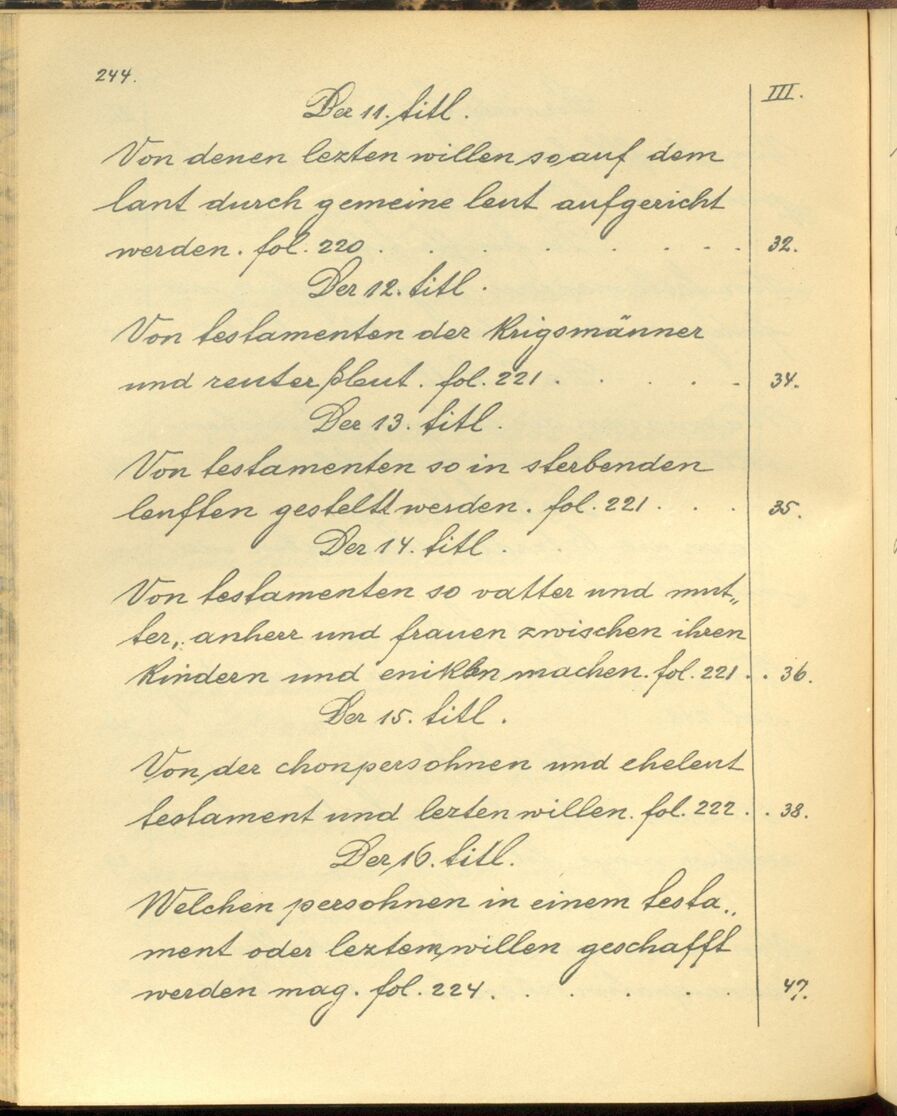 244.
III.
Der 11. titl.
Von denen lezten willen so auf dem
lant durch gemeine leut aufgericht
werden. fol. 220 . . . . . . . . 32.
Der 12. titl.
Von testamenten der Krigsmänner
und reutersleut. fol. 221 . . . . . 34.
Der 13. titl.
Von testamenten so in sterbenden
leuften gestellt werden. fol. 221 . . . 35.
Der 14. titl.
Von testamenten so vatter und mut„
ter, anherr und frauen zwischen ihren
Kindern und enikln machen. fol. 221 . . 36.
Der 15. titl.
Von der chonpersohnen und eheleut
testament und lezten willen. fol. 222 . . 38.
Der 16. titl.
Welchen persohnen in einem testa„
ment oder leztem willen geschafft
werden mag. fol. 224 . . . . . 47.